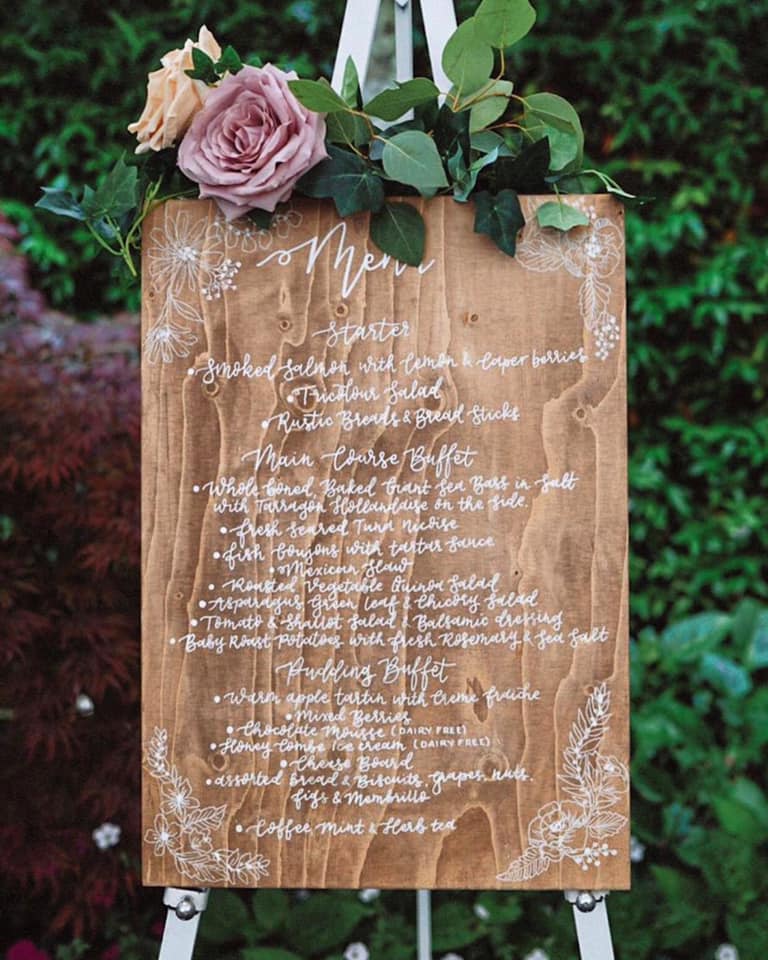 Menu
Starter
• Smoked Salmon with Lemon & Caper berries
• Tricolour Salad
• Rustic Breads & Bread Sticks
Main Course Buffet
• Whole boned, Baked Giant Sea Bass in Salt
with Tarragon Hollandaise on the side.
• Fresh Seared Tuna Nicoise
• Fish Goujons with tartar sauce
• Mexican Slaw
• Roasted Vegetable Quinoa Salad
• Asparagus, Green leaf & Chicory Salad
• Tomato & Shallot Salad & Balsamic dressing
• Baby Roast Potatoes with fresh Rosemary & Sea Salt
Pudding Buffet
• Warm apple tartin with Creme fraiche
• Mixed Berries
• Chocolate Mousse (DAIRY FREE)
• Honey Combe Ice cream (DAIRY FREE)
• Cheese Board
• assorted bread & Biscuits, grapes, nuts,
figs & Membrillo
• Coffee Mint & Herb tea